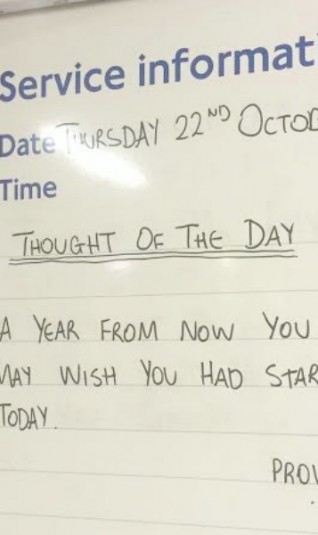 Service informat
Date THURSDAY 22ND OCTOB
Time
THOUGHT OF THE DAY
A YEAR FROM NOW YOU
MAY WISH YOU HAD STAR
TODAY.
PROV